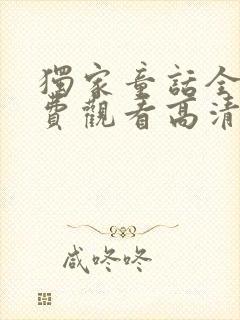 獨家童話全
費觀看高清
咸咚咚